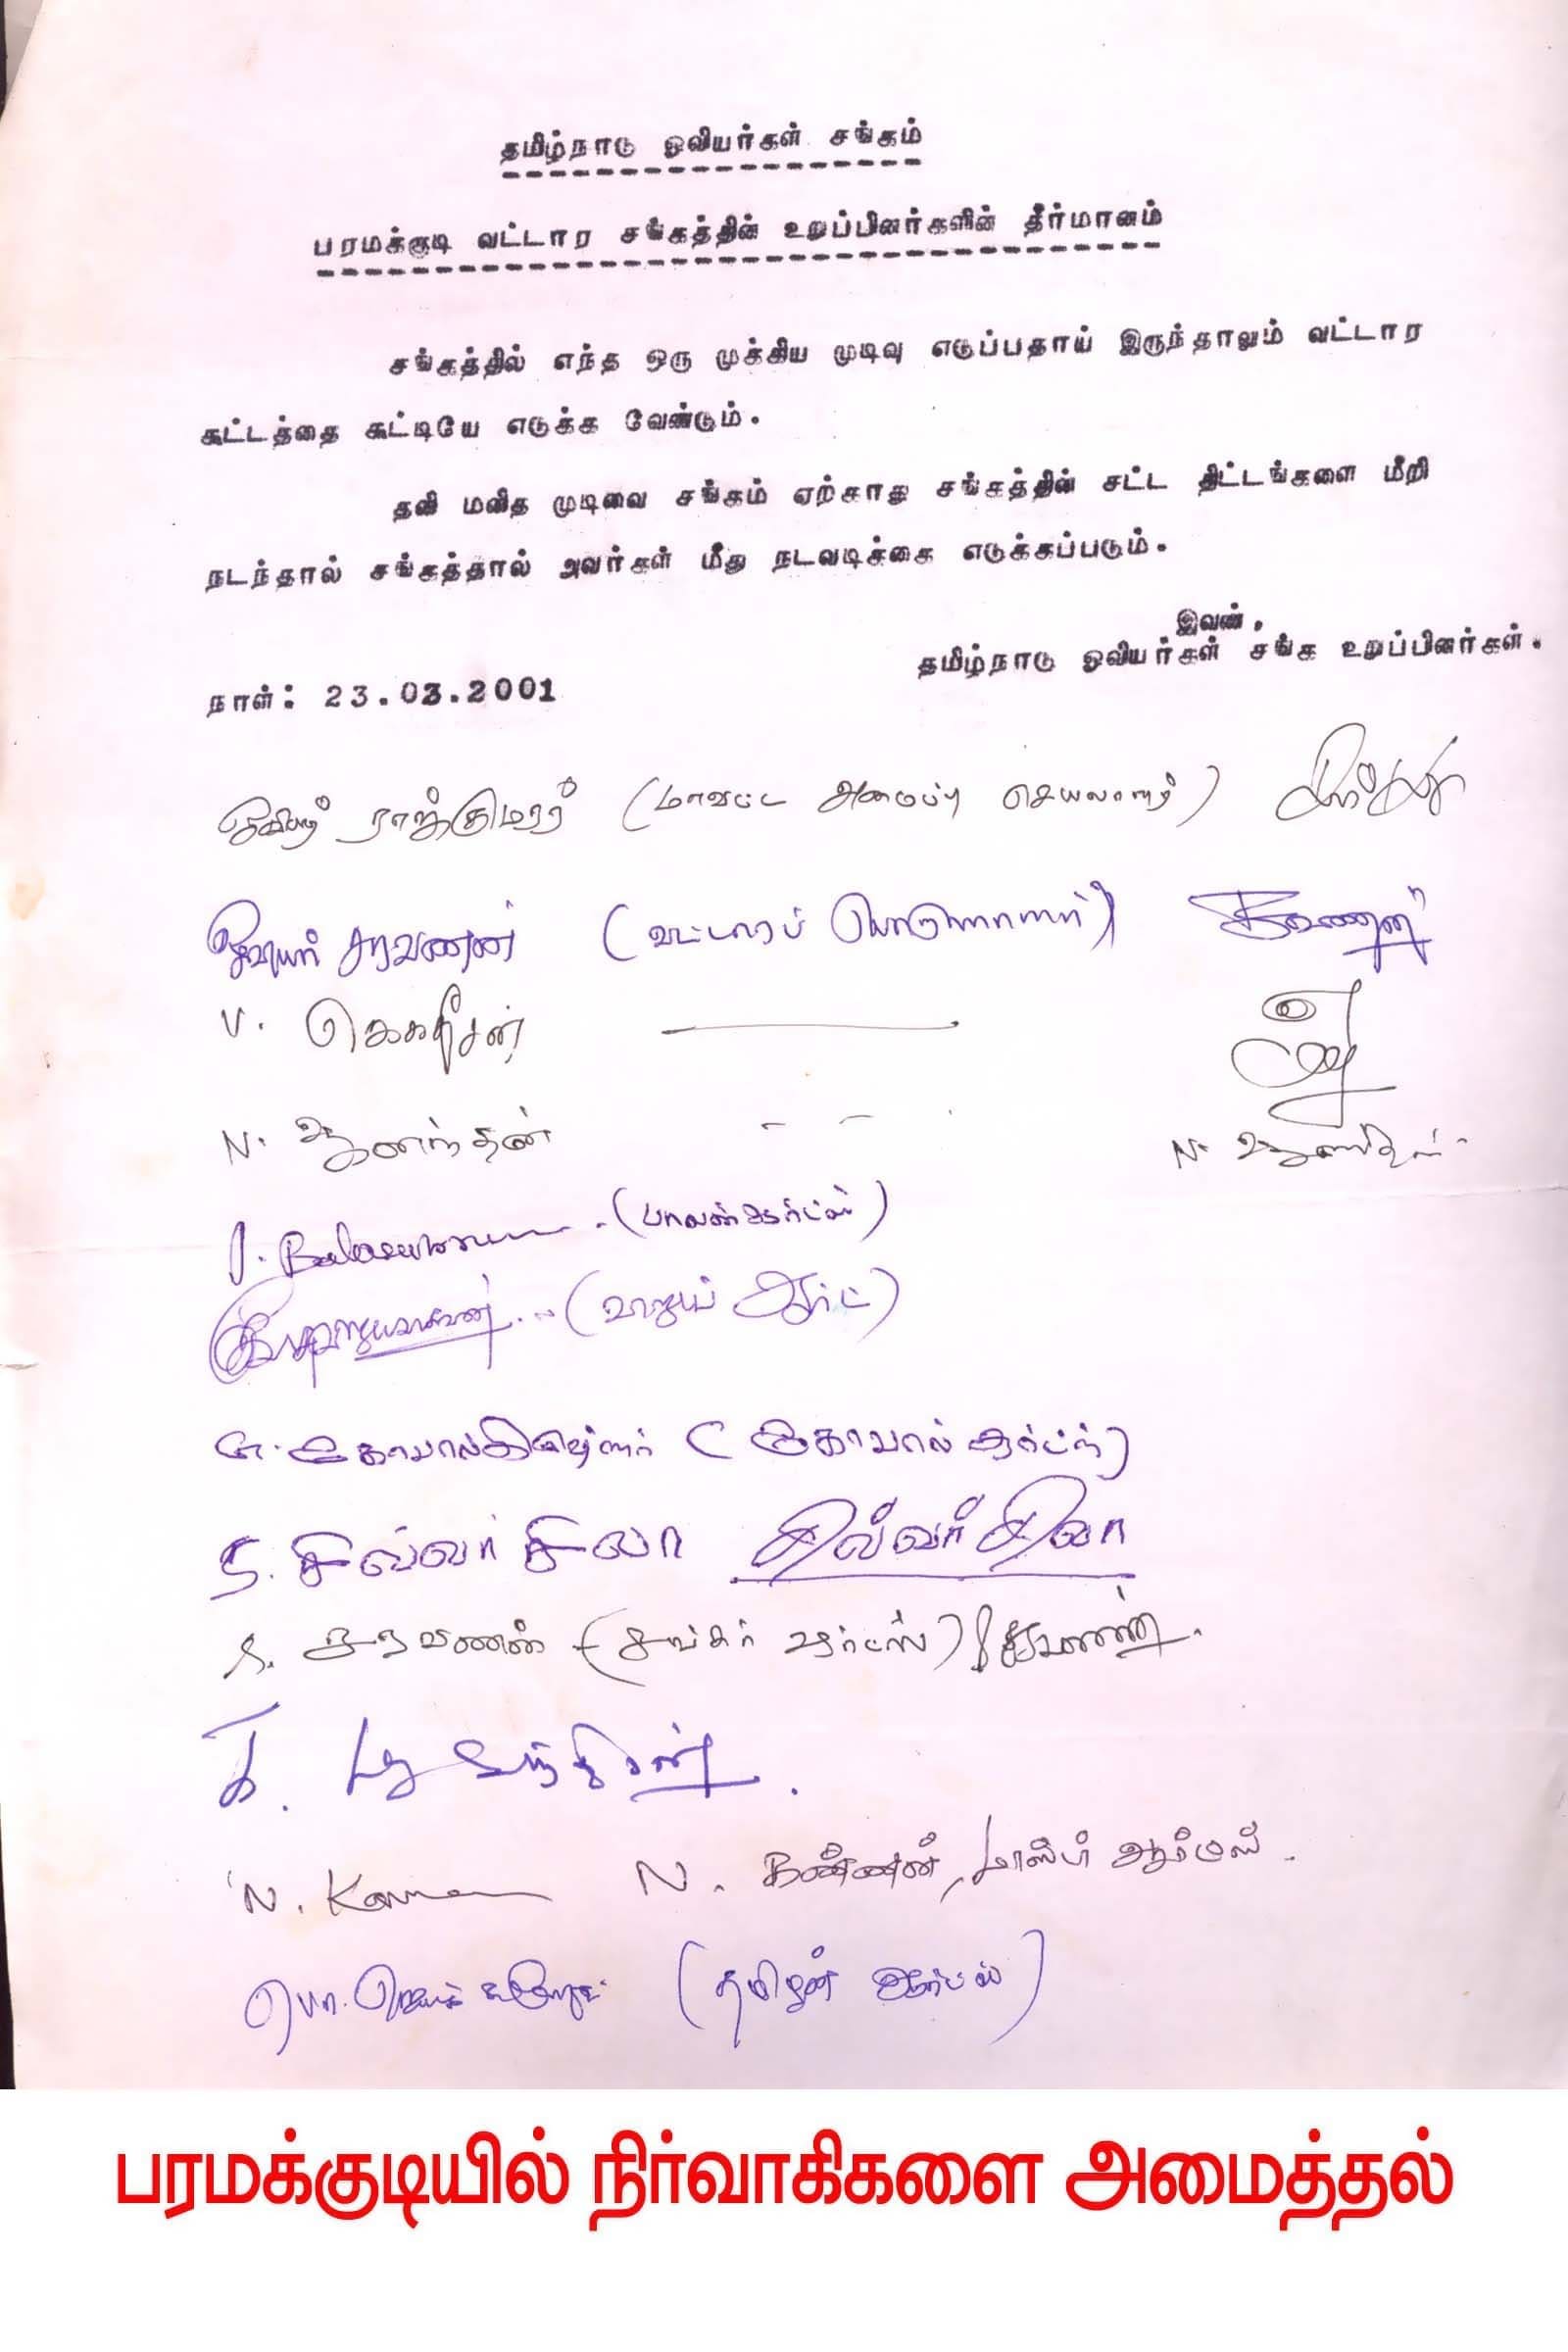 தமிழ்நாடு ஓவியர்கள் சங்கம்
பரமக்குடி வட்டார சங்கத்தின் உறுப்பினர்களின் தீர்மானம்
சங்கத்தில் எந்த ஒரு முக்கிய முடிவு எடுப்பதாய் இருந்தாலும் வட்டார
கூட்டத்தை கூட்டியே எடுக்க வேண்டும்.
தனி மனித முடிவை சங்கம் ஏற்காது சங்கத்தின் சட்ட திட்டங்களை மீறி
நடந்தால் சங்கத்தால் அவர்கள் மீது நடவடிக்கை எடுக்கப்படும்.
இவண்,
தமிழ்நாடு ஓவியர்கள் சங்க உறுப்பினர்கள்.
நாள்: 23.03.2001
ஓவியர் ராம்குமார் (மாவட்ட அமைப்பு செயலாளர்)
ஓவியர் சரவணன் (வட்டாரப் பொருளாளர்) சரவணன்
V. ஜெகதீசன்
N. ஆனந்தன் N. ஆனந்தன்
J. (பாலன் ஆர்ட்ஸ்)
(விஜய் ஆர்ட்)
G. கோபால்கிருஷ்ணன் (கோபால் ஆர்ட்ஸ்)
S. சில்வர் சிலா சில்வர் சிலா
S. சரவணன் (சங்கர் ஆர்ட்ஸ்) சரவணன்
K.
N. Kannan N. கண்ணன், ஆர்ட்ஸ்
பொ. (தமிழன் ஆர்ட்ஸ்)
பரமக்குடியில் நிர்வாகிகளை அமைத்தல்